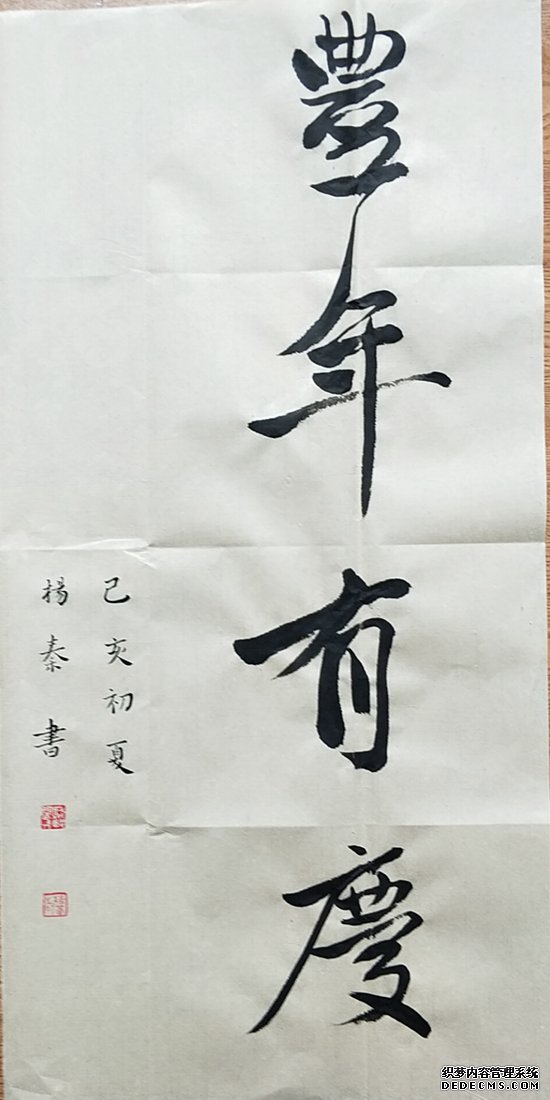 豐年有慶
己亥初夏
楊秦書
织梦内容管理系统
DEDECMS.COM